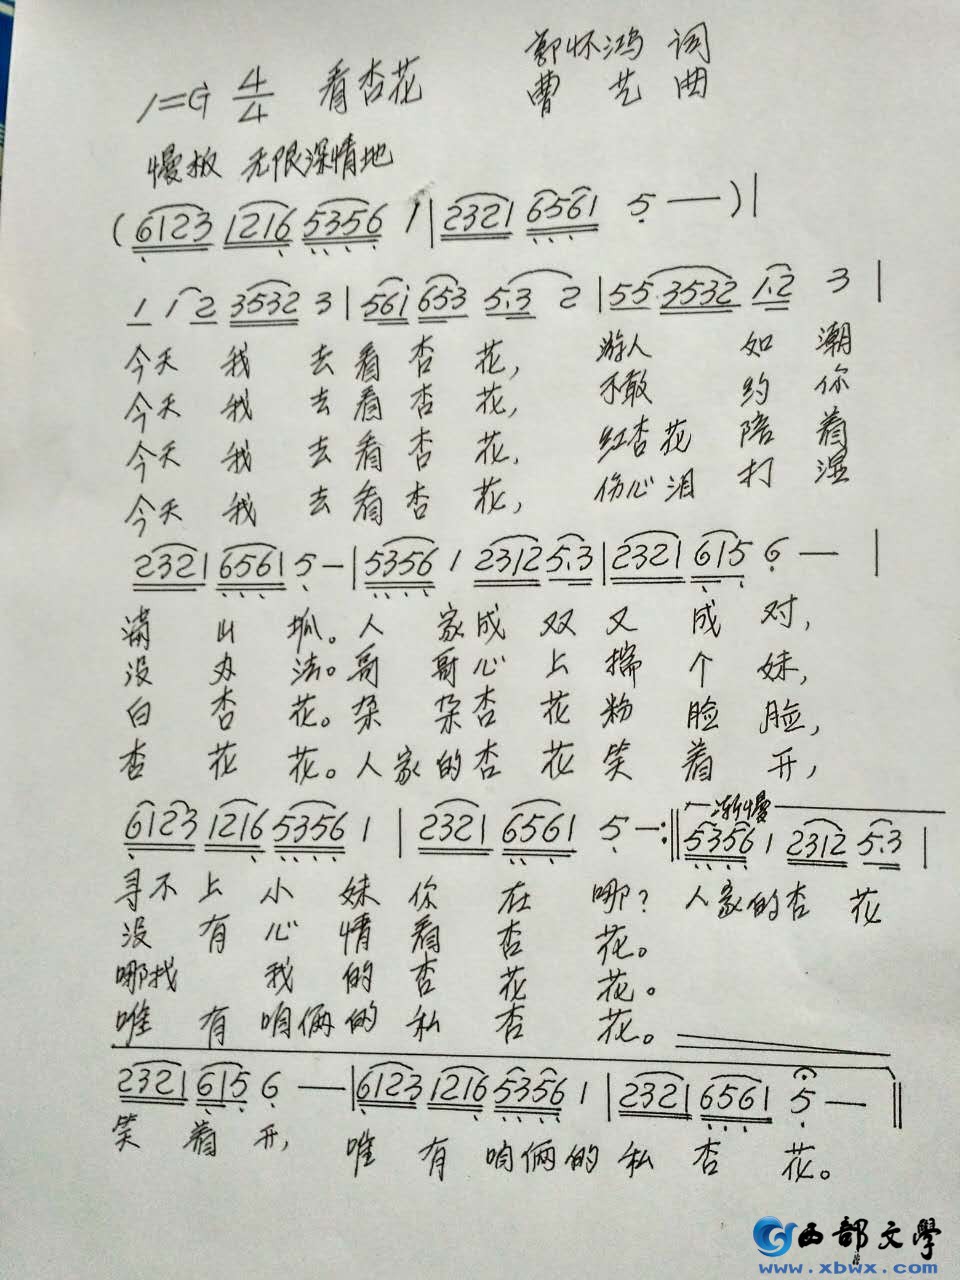 1=G 4/4 看杏花 郭怀鸿 词
曹艺 曲
慢板 无限深情地
(6123 1216 5356 1 | 2321 6561 5 — ) |
1 1 2 3532 3 | 561 653 5.3 2 | 55 3532 1.2 3 |
今天 我 去看杏花, 游人 如潮
今天 我 去看杏花, 不敢 约你
今天 我 去看杏花, 红杏花 陪着
今天 我 去看杏花, 伤心泪 打湿
2321 6561 5 — | 5356 1 2312 5.3 | 2321 615 6 — |
满山坬。人家成双又成对,
没办法。哥哥心上揣个妹,
白杏花。朵朵杏花粉脸脸,
杏花花。人家的杏花笑着开,
渐慢
6123 1216 5356 1 | 2321 6561 5 — :‖ 5356 1 2312 5.3 |
寻不上小妹你在哪? 人家的杏花
没有心情看杏花。
哪找我的杏花花。
唯有咱俩的私杏花。
2321 615 6 — | 6123 1216 5356 1 | 2321 6561 5 — ‖
笑着开, 唯有咱俩的私杏花。
西部文學
www.xbwx.com